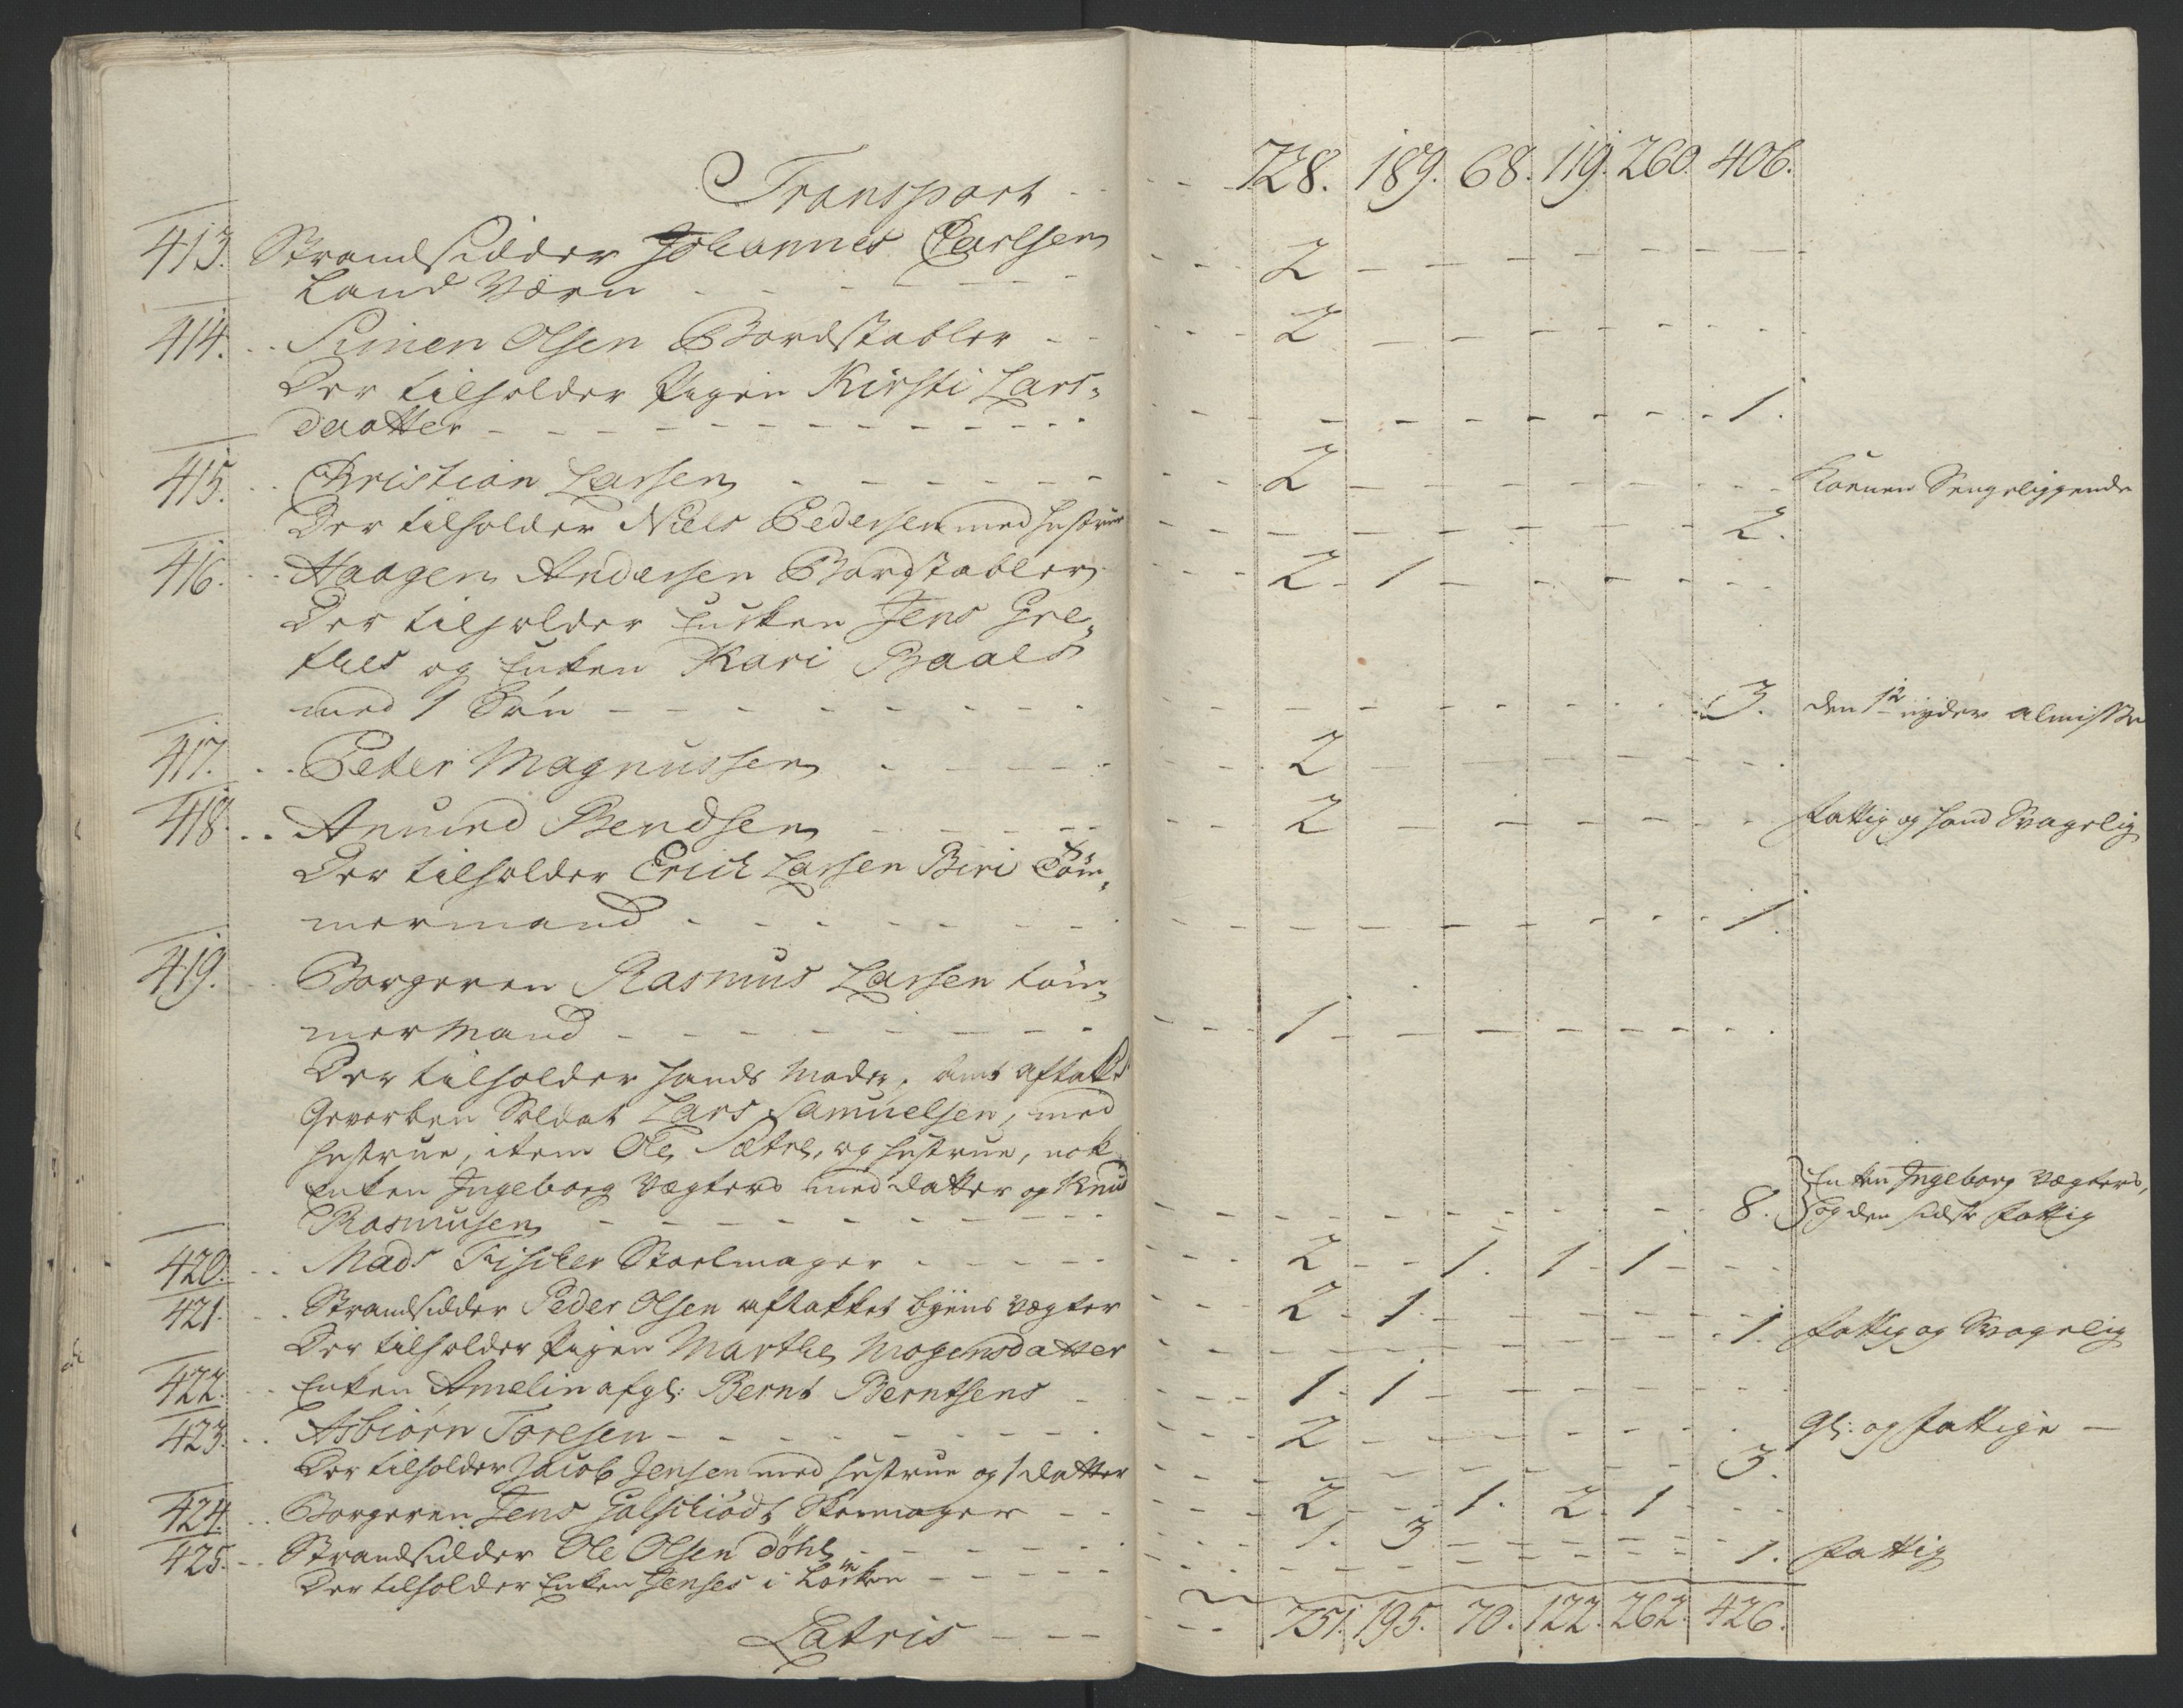 Transport - - - - 728. 189. 68. 119. 260. 406.
413. Strandsidder Johannes Carlsen
Land Værn - - - 2 - - - - -
414. Simen Olsen Bordstabler - - 2 - - - - -
Der tilholder Pigen Kirsti Lars-
daatter - - - - - - 1.
415. Christian Larsen - - - 2 - - - - - Konnen Sengeliggende
Der tilholder Niels Pedersen med Hustrue - - - - - 2.
416. Haagen Andersen Bordstabler - - 2 - 1 - - - -
Der tilholder Enken Jens Gre-
thes og Enken Kari Baals
med 1 Søn - - - - - - 3. den 1te nyder Almisse
417. Peter Magnussen - - - 2 - - - - -
418. Anund Bendsen - - - 2 - - - - - fattig og hand Svagelig
Der tilholder Erich Larsen Biri Töm-
mermand - - - - - - 1.
419. Borgeren Rasmus Larsen töm-
mer Mand - - - 1 - - - - -
Der tilholder hands Moder, Amt aftakt
Gevorben Soldat Lars Samuelsen, med
Hustrue, item Ole Sætre, og Hustrue, nok
Enken Ingeborg Vægters med datter og Knud
Rasmusen - - - - - - 8. Enken Ingeborg Vægters,
og den sidste fattig
420. Mads Fischer Stoelmager - - - 2 - - 1. 1 - 1 - -
421. Strandsidder Peder Olsen aftakket byens Vægter - - 2 - 1. - - - -
Der tilholder Pigen Marthe Mogensdatter - - - - - 1. fattig og Svagelig
422. Enken Amelin afgl: Bernt Berntsens - - 1 - 1 - - - -
423. Asbiörn Toresen - - - 2 - - - - - Gl: og fattige -
Der tilholder Jacob Jensen med Hustrue og 1 datter - - - - - 3.
424. Borgeren Jens Galschiödt Skomager - - 2 - - 1. 2. 1 - -
425. Strandsidder Ole Olsen Döhl - - - 1. 3 - - - -
Der tilholder Enken Jenses i Löcken - - - - - 1. fattig
Latris - - - 751. 195. 70. 122. 262. 426.